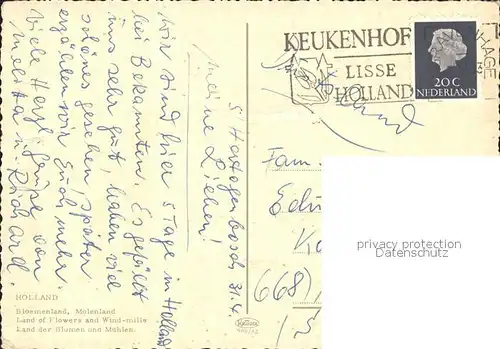 KEUKENHOF
LISSE
HOLLAND
20 C
NEDERLAND
s'Hertogenbosch 31.4.
Meine Lieben!
Wir sind hier 5 Tage in Holland
bei Bekannten. Es gefällt
uns sehr gut, haben viel
schönes gesehen, später
erzählen wir Euch mehr.
Viele Herzl. Grüße von
Melitta u. Richard.
Fam.
668
HOLLAND
Bloemenland, Molenland
Land of Flowers and Wind-mills
Land der Blumen und Mühlen.
privacy protection
Datenschutz